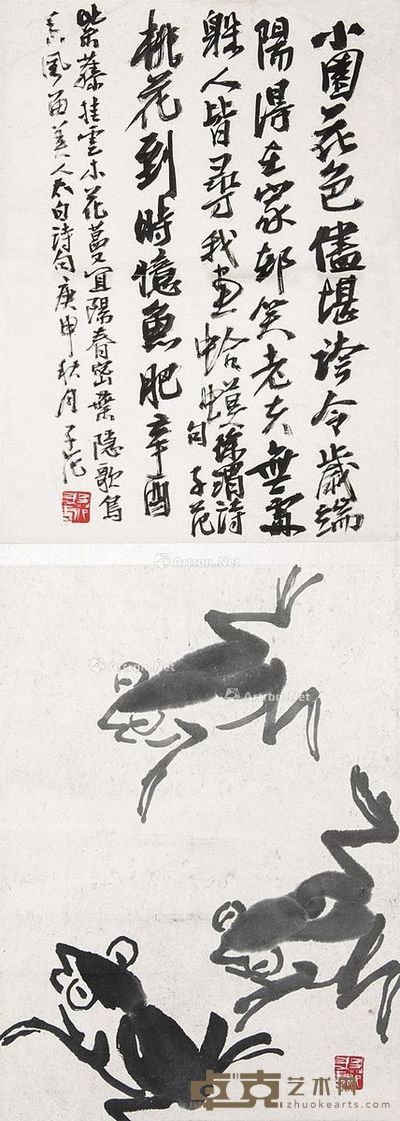 小園花色儘堪誇今歲端
陽得在家却笑老夫無處
躲人皆尋我畫蛤蟆徐渭詩句子范
桃花到時憶魚肥辛酉
紫藤挂雲木花蔓宜陽春密葉隱歌鳥
香風留美人太白詩句庚申秋月子范
Artron.Net
Artron.Net
Artron.Net
卓克艺术网
zhuokearts.com